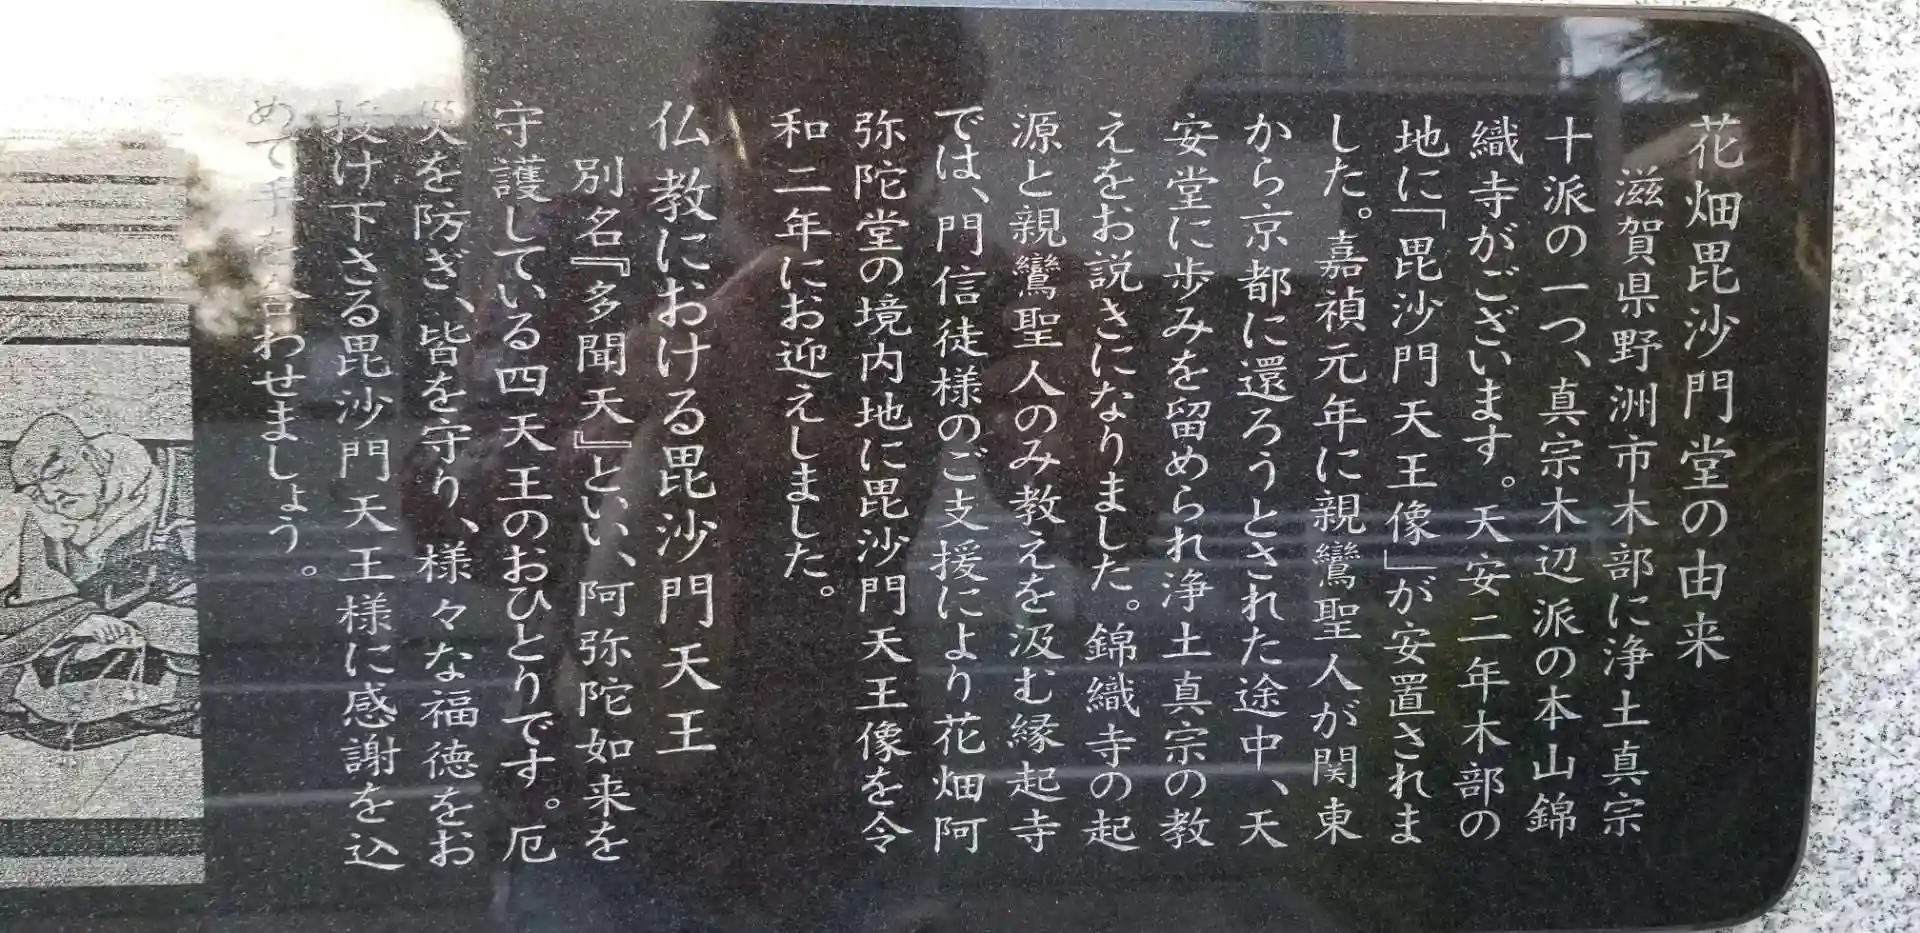 花畑毘沙門堂の由来
滋賀県野洲市木部に浄土真宗
十派の一つ、真宗木辺派の本山錦
織寺がございます。天安二年木部の
地に「毘沙門天王像」が安置されま
した。嘉禎元年に親鸞聖人が関東
から京都に還ろうとされた途中、天
安堂に歩みを留められ浄土真宗の教
えをお説きになりました。錦織寺の起
源と親鸞聖人のみ教えを汲む縁起寺
では、門信徒様のご支援により花畑阿
弥陀堂の境内地に毘沙門天王像を令
和二年にお迎えしました。
仏教における毘沙門天王
別名『多聞天』といい、阿弥陀如来を
守護している四天王のおひとりです。厄
災を防ぎ、皆を守り、様々な福徳をお
授け下さる毘沙門天王様に感謝を込
めて手を合わせましょう。